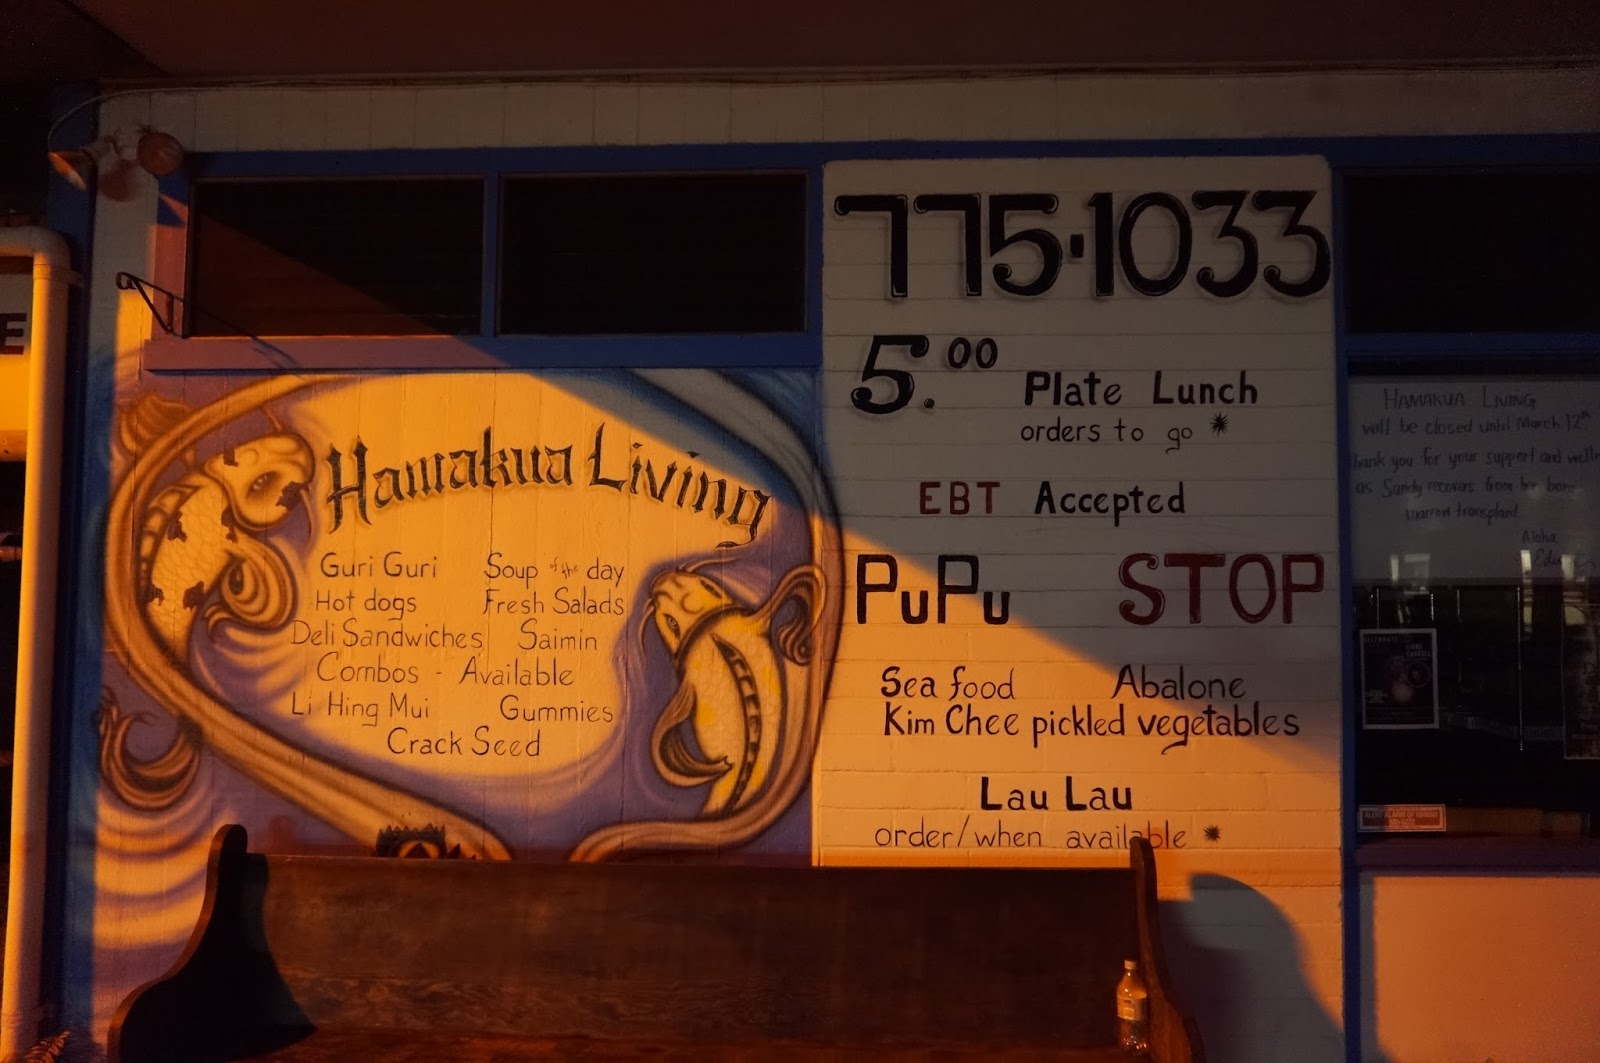 E
Hamakua Living
Guri Guri Soup of the day
Hot dogs Fresh Salads
Deli Sandwiches Saimin
Combos - Available
Li Hing Mui Gummies
Crack Seed
775·1033
5.00 Plate Lunch
orders to go *
EBT Accepted
PuPu STOP
Sea food Abalone
Kim Chee pickled vegetables
Lau Lau
order/when available *
HAMAKUA LIVING
will be closed until March 12th
hank you for your support and well
as Sandy recovers from her bone
marrow transplant
Aloha,